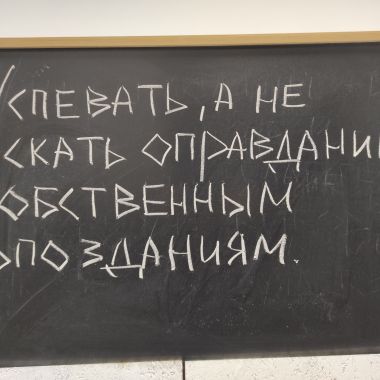 УСПЕВАТЬ, А НЕ
СКАТЬ ОПРАВДАНИ
ОБСТВЕННЫМ
ОПОЗДАНИЯМ.